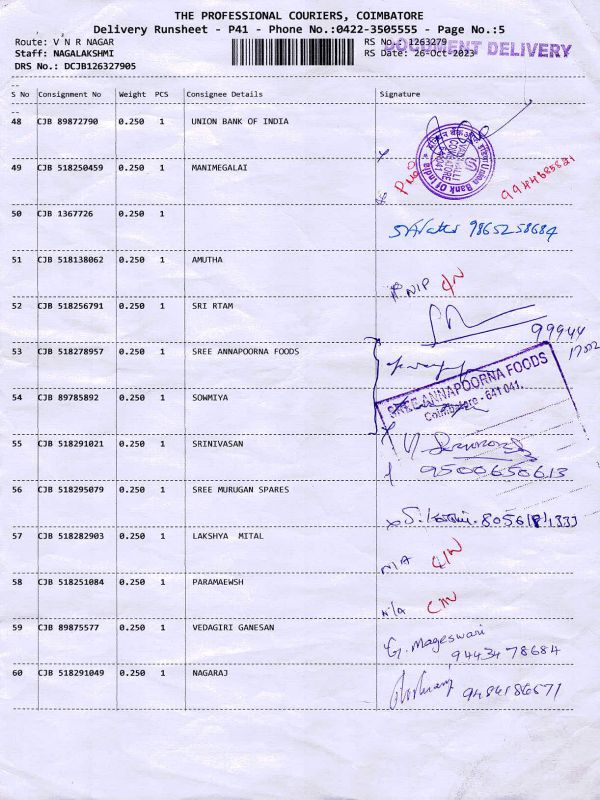 THE PROFESSIONAL COURIERS, COIMBATORE
Delivery Runsheet - P41 - Phone No.:0422-3505555 - Page No.:5
Route: V N R NAGAR RS No.: 1263279
Staff: NAGALAKSHMI RS Date: 26-Oct-2023
DOCUMENT DELIVERY
DRS No.: DCJB126327905
S No Consignment No Weight PCS Consignee Details Signature
48 CJB 89872790 0.250 1 UNION BANK OF INDIA
Union Bank Of India
49 CJB 518250459 0.250 1 MANIMEGALAI
50 CJB 1367726 0.250 1 9865258684
51 CJB 518138062 0.250 1 AMUTHA
52 CJB 518256791 0.250 1 SRI RTAM
99944
53 CJB 518278957 0.250 1 SREE ANNAPOORNA FOODS
SREE ANNAPOORNA FOODS
Coimbatore - 641 041.
54 CJB 89785892 0.250 1 SOWMIYA
55 CJB 518291021 0.250 1 SRINIVASAN
9500650613
56 CJB 518295079 0.250 1 SREE MURUGAN SPARES
57 CJB 518282903 0.250 1 LAKSHYA MITAL N/A
58 CJB 518251084 0.250 1 PARAMAEWSH N/a
59 CJB 89875577 0.250 1 VEDAGIRI GANESAN G. Mageswari
9443478684
60 CJB 518291049 0.250 1 NAGARAJ